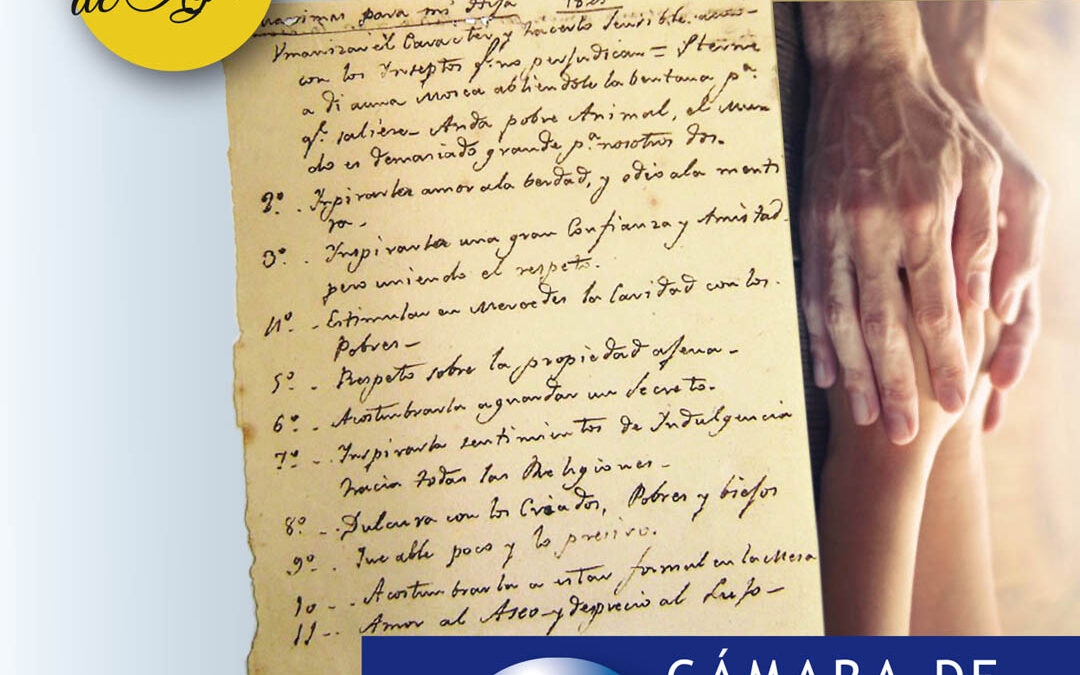 de
Maximas para mi Hija 1825
Umanizar el Caracter y hacerlo sensible aun
con los Inseptos q.e no perjudican = Sterne
a di auna Mosca abliendole la bentana p.a
q.e saliese - Anda pobre Animal, el Mun
do es demasiado grande p.a nosotros dos.
2º. Inpirarla amor ala berdad, y odio ala menti
ra-
3º. Inspirarla una gran Confianza y Amistad
pero uniendo el respeto.
4º. Estimular en Mercedes la Caridad con los.
Pobres-
5º. Respeto sobre la propiedad ajena-
6º. Acostumbrarla a guardar un Secreto.
7º. Inspirarla sentimientos de Indulgencia
hacia todas las Religiones-
8º. Dulsura con los Criados, Pobres y biejos
9º. Que able poco y lo presiso.
10- Acostumbrarla a estar formal en la Mesa
11- Amor al Aseo y desprecio al Lujo-
CÁMARA DE